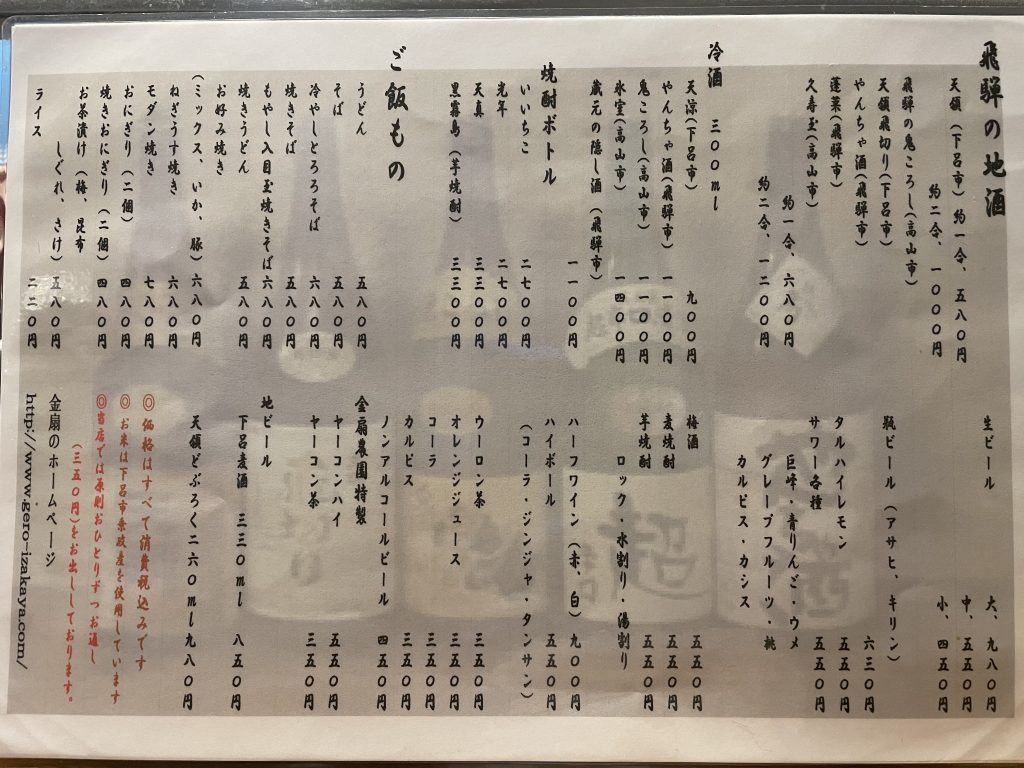 飛騨の地酒
天領(下呂市)約一合、五八〇円
約二合、一〇〇〇円
飛騨の鬼ころし(高山市)
天領飛切り(下呂市)
やんちゃ酒(飛騨市)
蓬莱(飛騨市)
久寿玉(高山市)
約一合、六八〇円
約二合、一二〇〇円
冷酒 三〇〇ml
天涼(下呂市) 九〇〇円
やんちゃ酒(飛騨市) 一一〇〇円
鬼ころし(高山市) 一一〇〇円
氷室(高山市) 一四〇〇円
蔵元の隠し酒(飛騨市)
一一〇〇円
焼酎ボトル
いいちこ 二七〇〇円
光年 二七〇〇円
天真 三三〇〇円
黒霧島(芋焼酎) 三三〇〇円
ご飯もの
うどん 五八〇円
そば 五八〇円
冷やしとろろそば 六八〇円
焼きそば 五八〇円
もやし入目玉焼きそば 六八〇円
焼きうどん 五八〇円
お好み焼き
(ミックス、いか、豚)六八〇円
ねぎうす焼き 六八〇円
モダン焼き 七八〇円
おにぎり(二個) 四八〇円
焼きおにぎり(二個) 四八〇円
お茶漬け(梅、昆布
しぐれ、さけ) 五八〇円
ライス 二二〇円
生ビール 大、九八〇円
中、五五〇円
小、四五〇円
瓶ビール(アサヒ、キリン)
六三〇円
タルハイレモン 五五〇円
サワー各種 五五〇円
巨峰・青りんご・ウメ
グレープフルーツ・桃
カルピス・カシス
梅酒 五五〇円
麦焼酎 五五〇円
芋焼酎 五五〇円
ロック・水割り・湯割り
ハーフワイン(赤、白)九〇〇円
ハイボール 五五〇円
(コーラ・ジンジャ・タンサン)
ウーロン茶 三五〇円
オレンジジュース 三五〇円
コーラ 三五〇円
カルピス 三五〇円
ノンアルコールビール 四五〇円
金扇農園特製
ヤーコンハイ 五五〇円
ヤーコン茶 三五〇円
地ビール
下呂麦酒 三三〇ml 八五〇円
天領どぶろく二六〇ml九八〇円
◎価格はすべて消費税込みです
◎お米は下呂市乗政産を使用しています
◎当店では原則おひとりずつお通し
(三五〇円)をお出ししております。
金扇のホームページ
http://www.gero-izakaya.com/